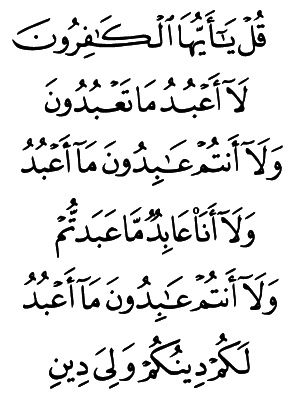 قُلْ يَـٰٓأَيُّهَا ٱلْكَـٰفِرُونَ
لَآ أَعْبُدُ مَا تَعْبُدُونَ
وَلَآ أَنتُمْ عَـٰبِدُونَ مَآ أَعْبُدُ
وَلَآ أَنَا۠ عَابِدٌ مَّا عَبَدتُّمْ
وَلَآ أَنتُمْ عَـٰبِدُونَ مَآ أَعْبُدُ
لَكُمْ دِينُكُمْ وَلِىَ دِينِ